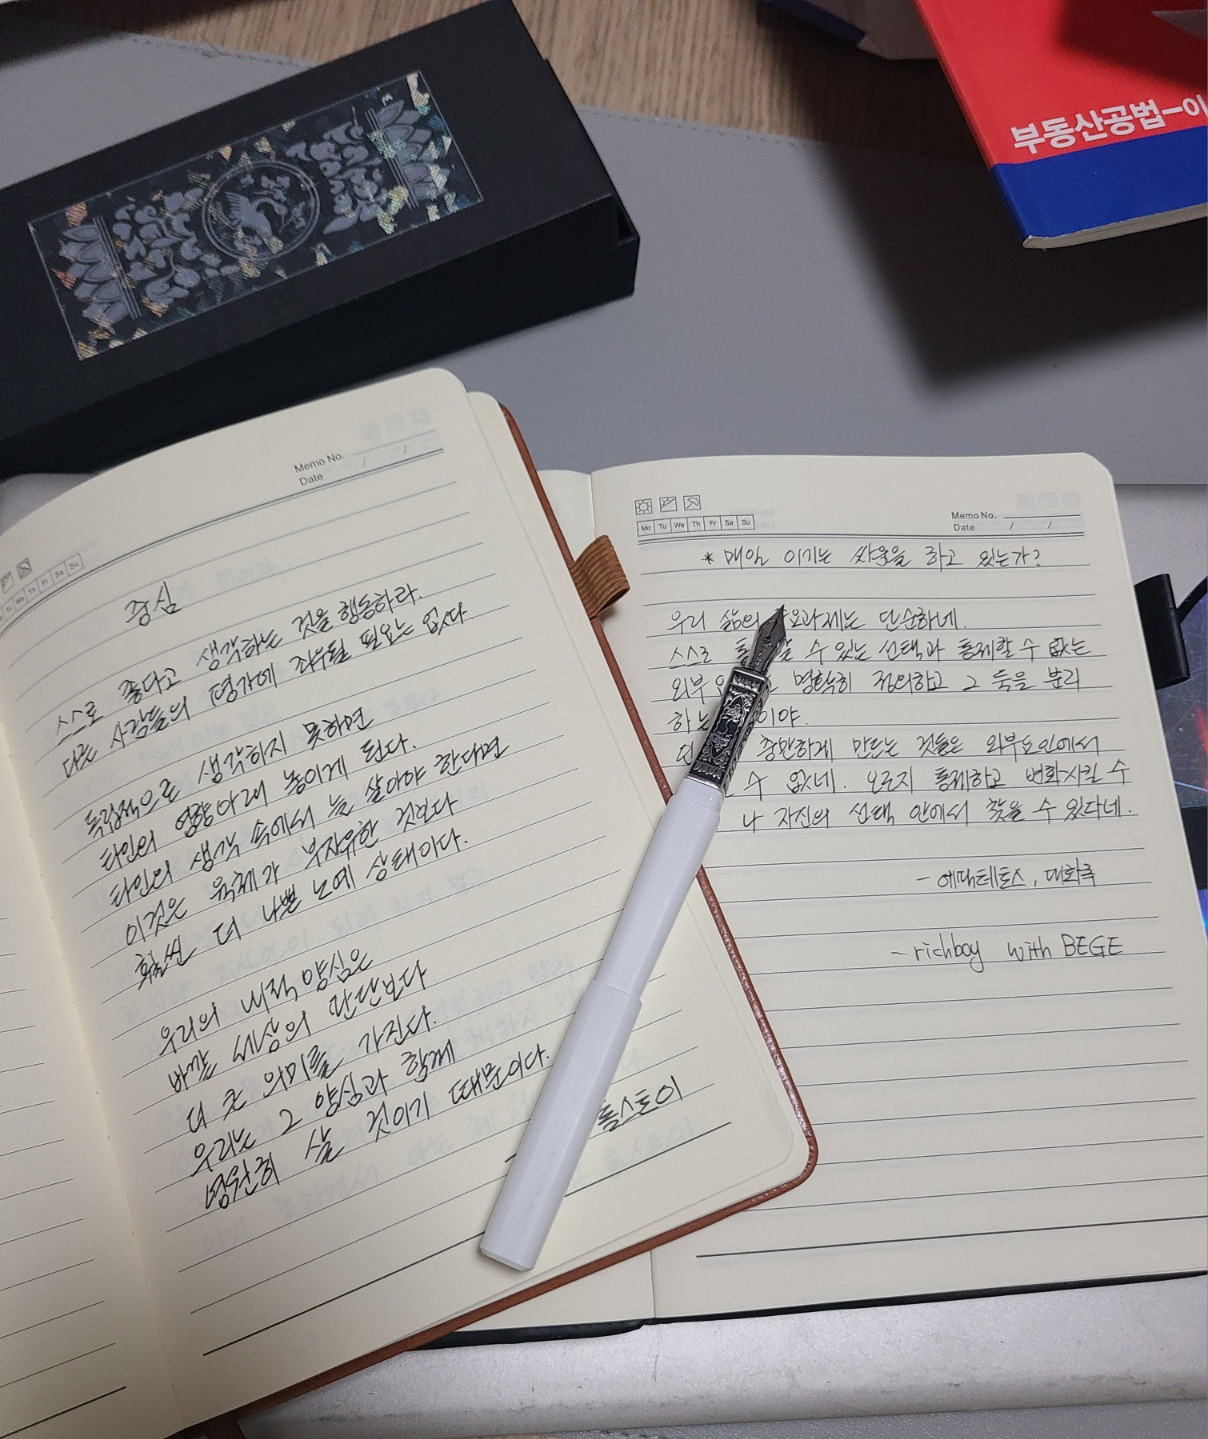 부동산공법-이
Memo No.
Date / /
Mo Tu We Th Fr Sa Su
중심
스스로 좋다고 생각하는 것을 행동하라.
다른 사람들의 평가에 좌우될 필요는 없다
독립적으로 생각하지 못하면
타인의 영향아래 놓이게 된다.
타인의 생각 속에서 늘 살아야 한다면
이것은 육체가 부자유한 것보다
훨씬 더 나쁜 노예 상태이다.
우리의 내적 양심은
바깥 세상의 판단보다
더 큰 의미를 가진다.
우리는 그 양심과 함께
영원히 살 것이기 때문이다.
톨스토이
Mo Tu We Th Fr Sa Su
Memo No.
Date / /
* 매일 이기는 싸움을 하고 있는가?
우리 삶의 과제는 단순하네.
스스로 수 있는 선택과 통제할 수 없는
외부 명확히 정의하고 그 둘을 분리
하는 이야.
충만하게 만드는 것들은 외부요인에서
수 없네. 오르지 통제하고 변화시킬 수
나 자신의 선택 안에서 찾을 수 있다네.
- 에픽테토스, 대화록
- richboy with BEGE